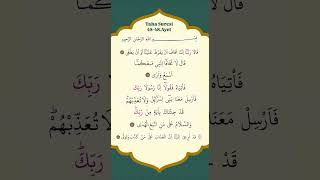 Taha Suresi
45-48.Ayet
بِسْمِ اللّٰهِ الرَّحْمٰنِ الرَّحِيمِ
قَالَا رَبَّنَٓا اِنَّنَا نَخَافُ اَنْ يَفْرُطَ عَلَيْنَٓا اَوْ اَنْ يَطْغٰى
قَالَ لَا تَخَافَٓا اِنَّنِي مَعَكُمَٓا
اَسْمَعُ وَاَرٰى
فَأْتِيَاهُ فَقُولَٓا اِنَّا رَسُولَا رَبِّكَ
فَاَرْسِلْ مَعَنَا بَنِٓي اِسْرَٓائِلَ وَلَا تُعَذِّبْهُمْ
قَدْ جِئْنَاكَ بِاٰيَةٍ مِنْ رَبِّكَ
وَالسَّلَامُ عَلٰى مَنِ اتَّبَعَ الْهُدٰى
اِنَّا قَدْ اُوحِيَ اِلَيْنَٓا اَنَّ الْعَذَابَ عَلٰى مَنْ كَذَّبَ وَتَوَلّٰى